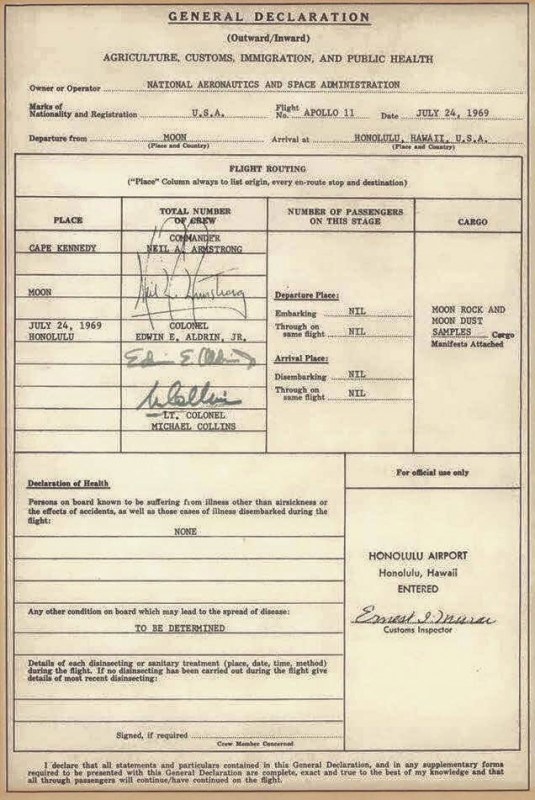 GENERAL DECLARATION
(Outward/Inward)
AGRICULTURE, CUSTOMS, IMMIGRATION, AND PUBLIC HEALTH
Owner or Operator NATIONAL AERONAUTICS AND SPACE ADMINISTRATION
Marks of
Nationality and Registration U.S.A. Flight No. APOLLO 11 Date JULY 24, 1969
Departure from MOON Arrival at HONOLULU, HAWAII, U.S.A.
(Place and Country) (Place and Country)
FLIGHT ROUTING
("Place" Column always to list origin, every en-route stop and destination)
PLACE
TOTAL NUMBER
OF CREW
NUMBER OF PASSENGERS
ON THIS STAGE
CARGO
CAPE KENNEDY
COMMANDER
NEIL A. ARMSTRONG
MOON
Neil A. Armstrong
JULY 24, 1969
HONOLULU
COLONEL
EDWIN E. ALDRIN, JR.
Edwin E. Aldrin
M Collins
LT. COLONEL
MICHAEL COLLINS
Departure Place:
Embarking NIL
Through on
same flight NIL
Arrival Place:
Disembarking NIL
Through on
same flight NIL
MOON ROCK AND
MOON DUST
SAMPLES Cargo
Manifests Attached
Declaration of Health
Persons on board known to be suffering from illness other than airsickness or
the effects of accidents, as well as those cases of illness disembarked during the
flight:
NONE
Any other condition on board which may lead to the spread of disease:
TO BE DETERMINED
Details of each disinsecting or sanitary treatment (place, date, time, method)
during the flight. If no disinsecting has been carried out during the flight give
details of most recent disinsecting:
Signed, if required
Crew Member Concerned
For official use only
HONOLULU AIRPORT
Honolulu, Hawaii
ENTERED
Ernest I.
Customs Inspector
I declare that all statements and particulars contained in this General Declaration, and in any supplementary forms
required to be presented with this General Declaration are complete, exact and true to the best of my knowledge and that
all through passengers will continue/have continued on the flight.